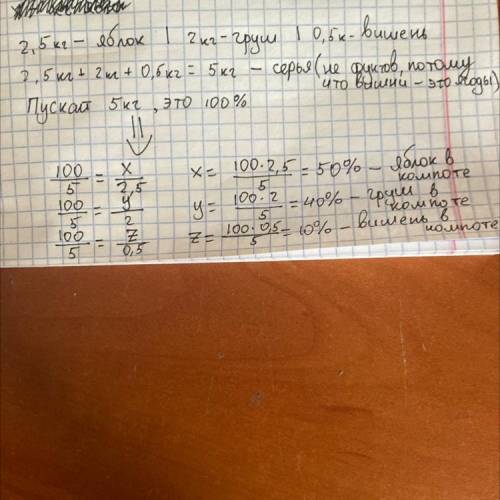 2,5кг – яблок | 2кг – груш | 0,5к- вишень
2,5кг + 2кг + 0,5кг = 5кг – серья (не фуктов, потому
что вишни – это ягоды)
Пускай 5кг, это 100%
100/5 = x/2,5 x = 100·2,5/5 = 50% – яблок в компоте
100/5 = y/2 y = 100·2/5 = 40% – груш в компоте
100/5 = z/0,5 z = 100·0,5/5 = 10% – вишень в компоте